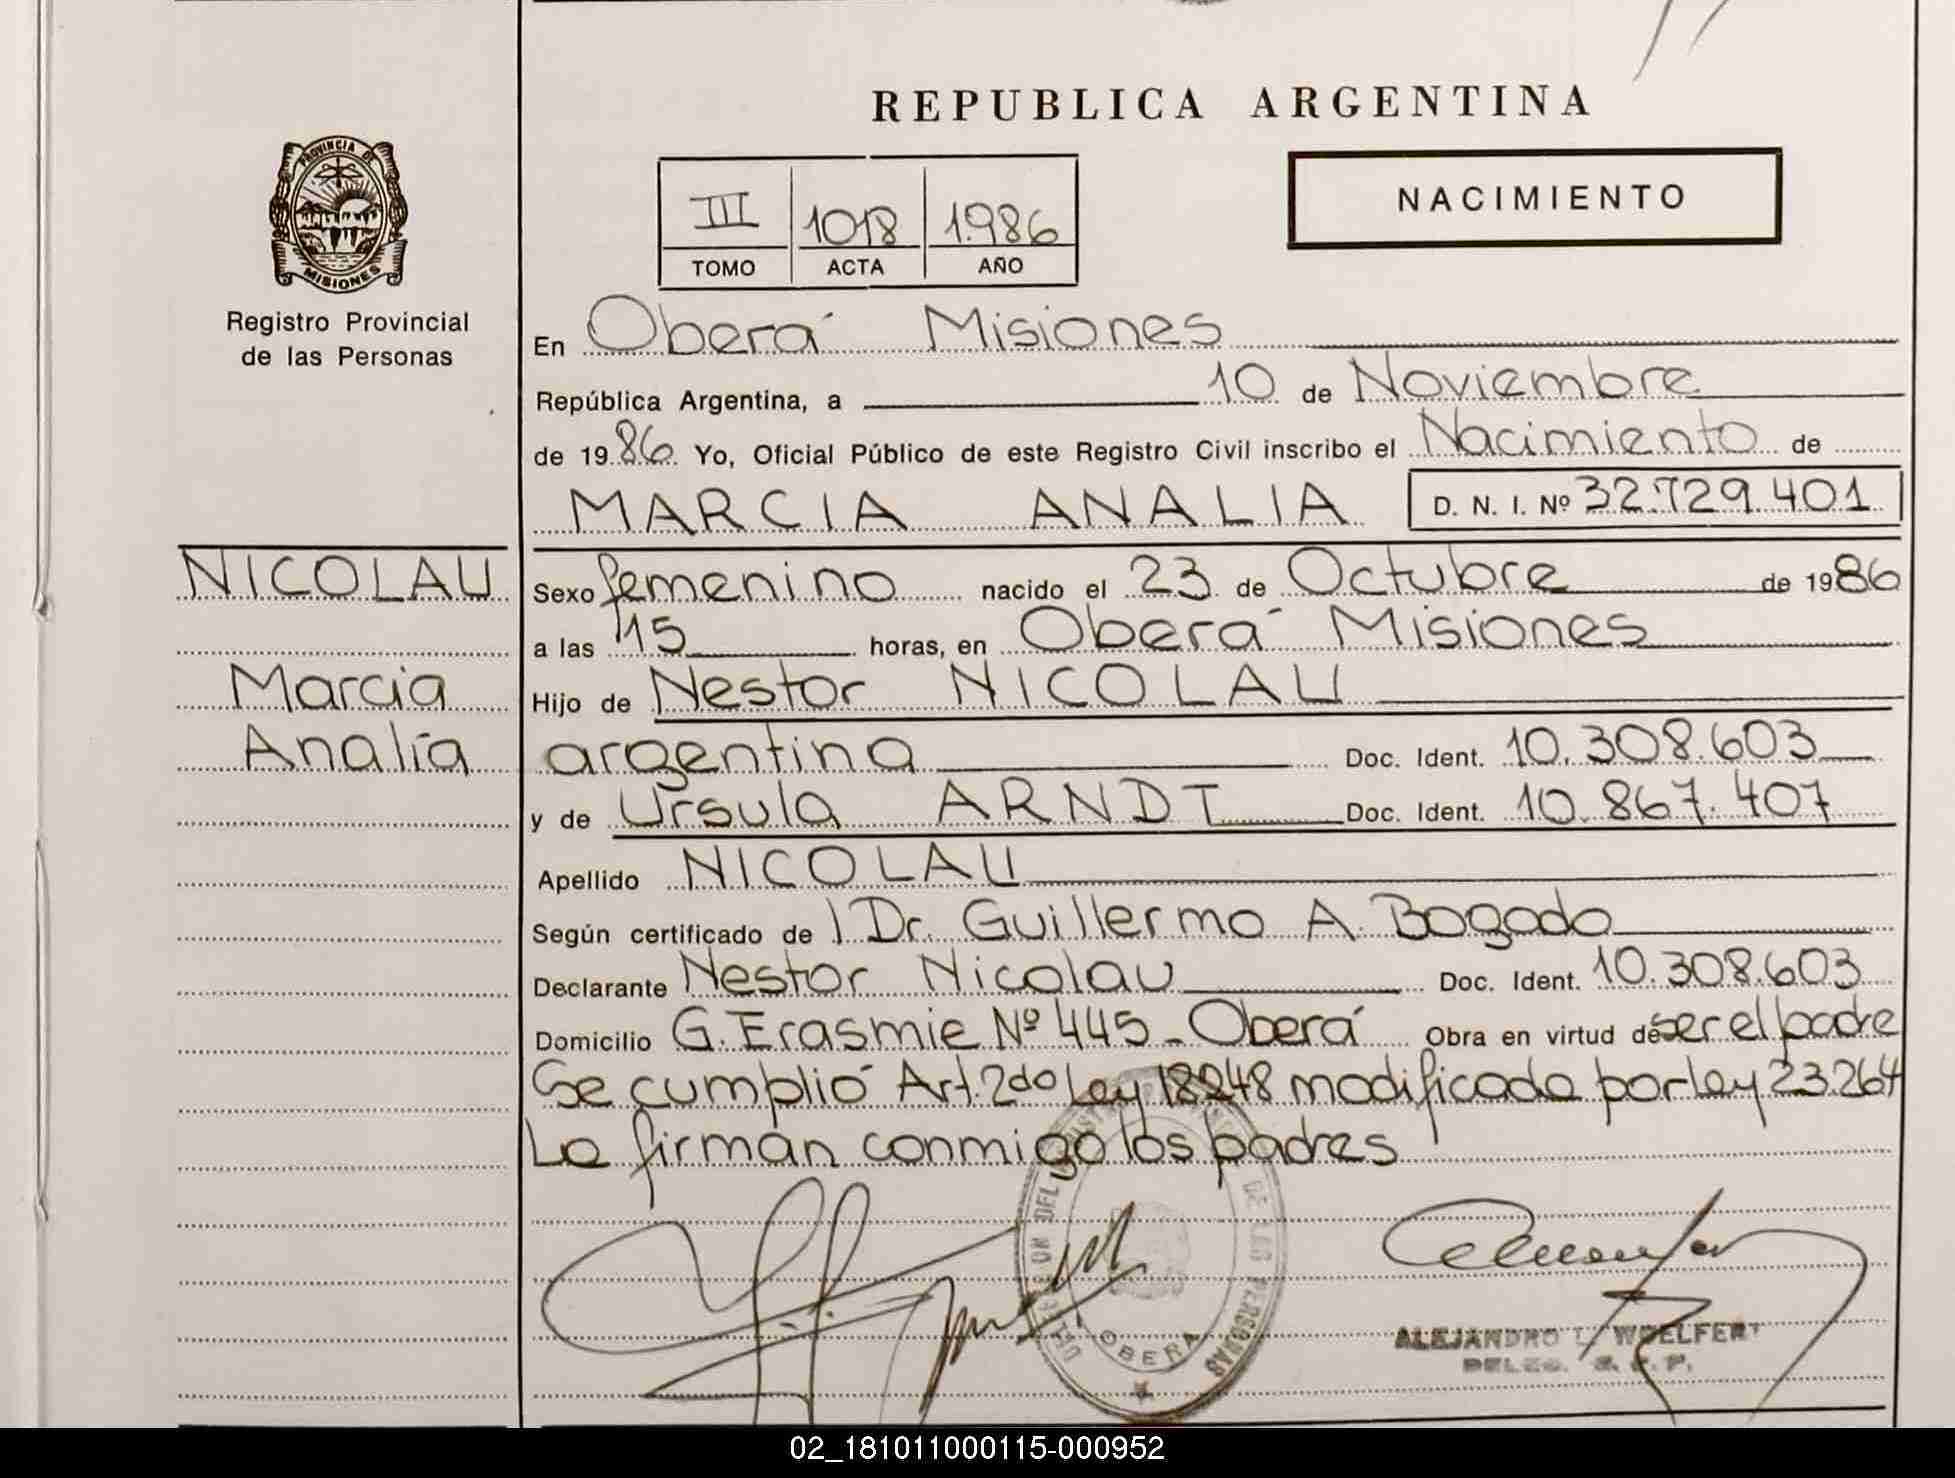 REPUBLICA ARGENTINA
NACIMIENTO
PROVINCIA DE
MISIONES
Registro Provincial
de las Personas
III 1018 1.986
TOMO ACTA AÑO
En Oberá Misiones
República Argentina, a 10 de Noviembre
de 1986 Yo, Oficial Público de este Registro Civil inscribo el Nacimiento de
MARCIA ANALIA D. N. I. Nº 32.729.401
NICOLAU
Marcia
Analía
Sexo femenino nacido el 23 de Octubre de 1986
a las 15 horas, en Oberá Misiones
Hijo de Nestor NICOLAU
argentina Doc. Ident. 10.308.603
y de Ursula ARNDT Doc. Ident. 10.867.407
Apellido NICOLAU
Según certificado de l Dr. Guillermo A. Bogado
Declarante Nestor Nicolau Doc. Ident. 10.308.603
Domicilio G. Erasmie Nº 445 - Oberá Obra en virtud de ser el padre
Se cumplió Art. 2do Ley 18248 modificada por ley 23.264
La firman conmigo los padres
DE LAS PERSONAS
OBERA
ALEJANDRO L. WOELFERT
02_181011000115-000952